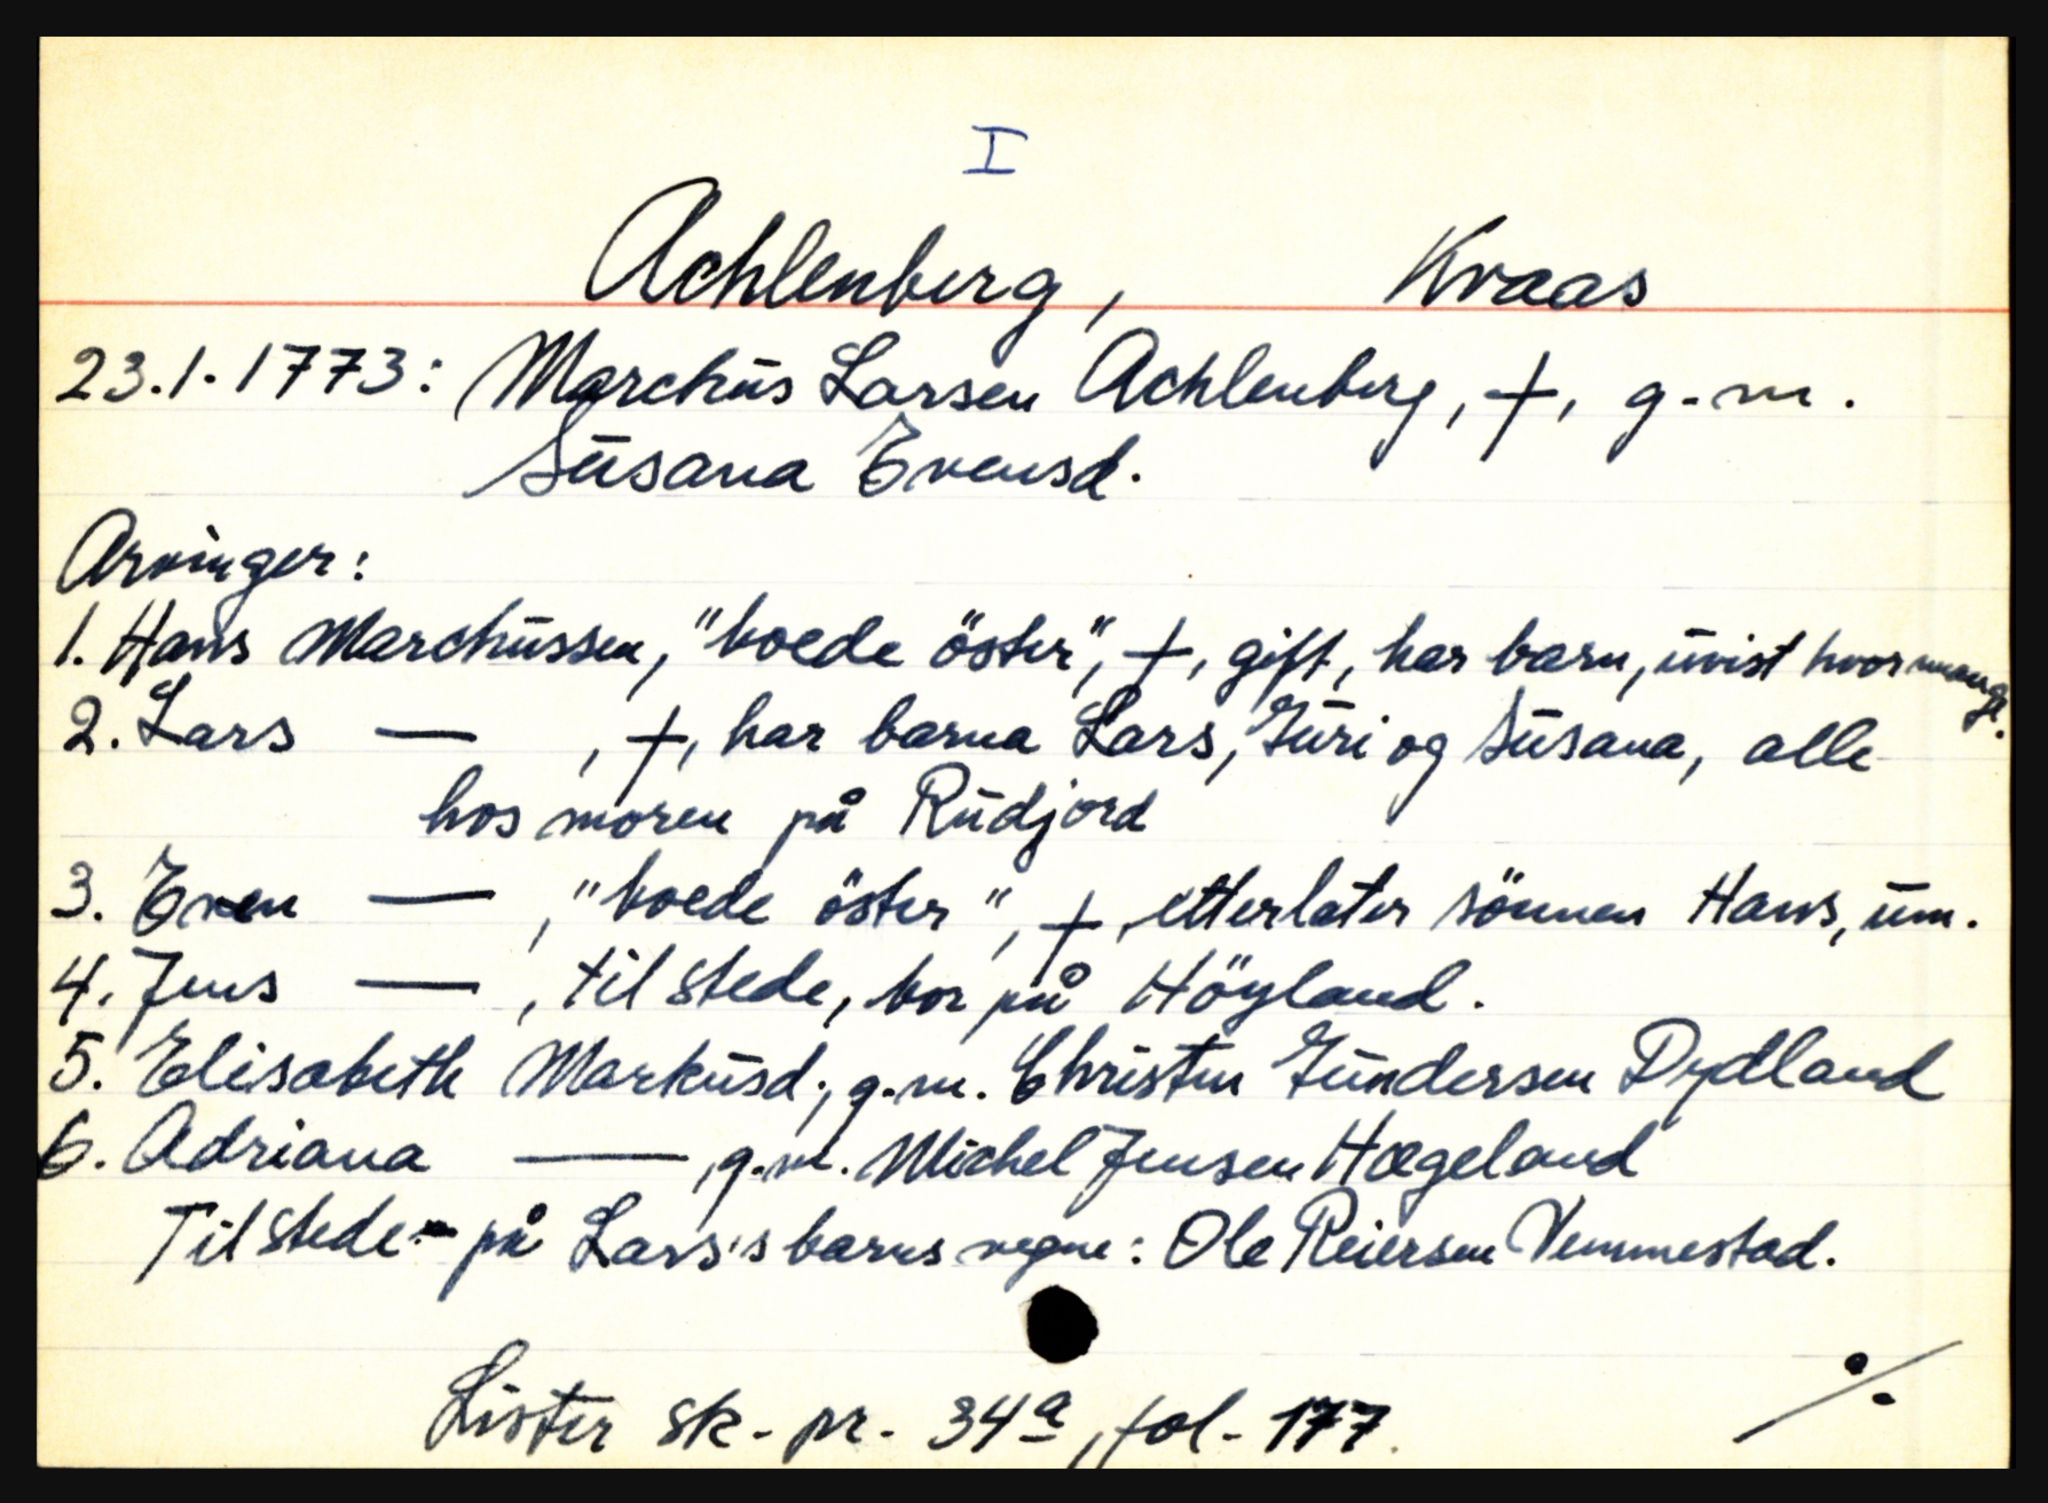 I
Achlenberg, Kvaas
23.1.1773: Marchus Larsen Achlenberg, †, g.m.
Susana Evensd.
Arvinger:
1. Hans Marchussen, "boede öster", †, gift, har barn, uvist hvor mange.
2. Lars — , †, har barna Lars, Guri og Susana, alle
hos moren på Rudjord
3. Even — , "boede öster", †, etterlater sönnen Hans, um.
4. Jens — , til stede, bor på Höyland.
5. Elisabeth Markusd., g.m. Christen Gundersen Dydland
6. Adriana — , g.m. Michel Jensen Hægeland
Til stede på Lars's barns vegne: Ole Reiersen Vemmestad.
Lister sk-pr. 34a, fol-177.
%